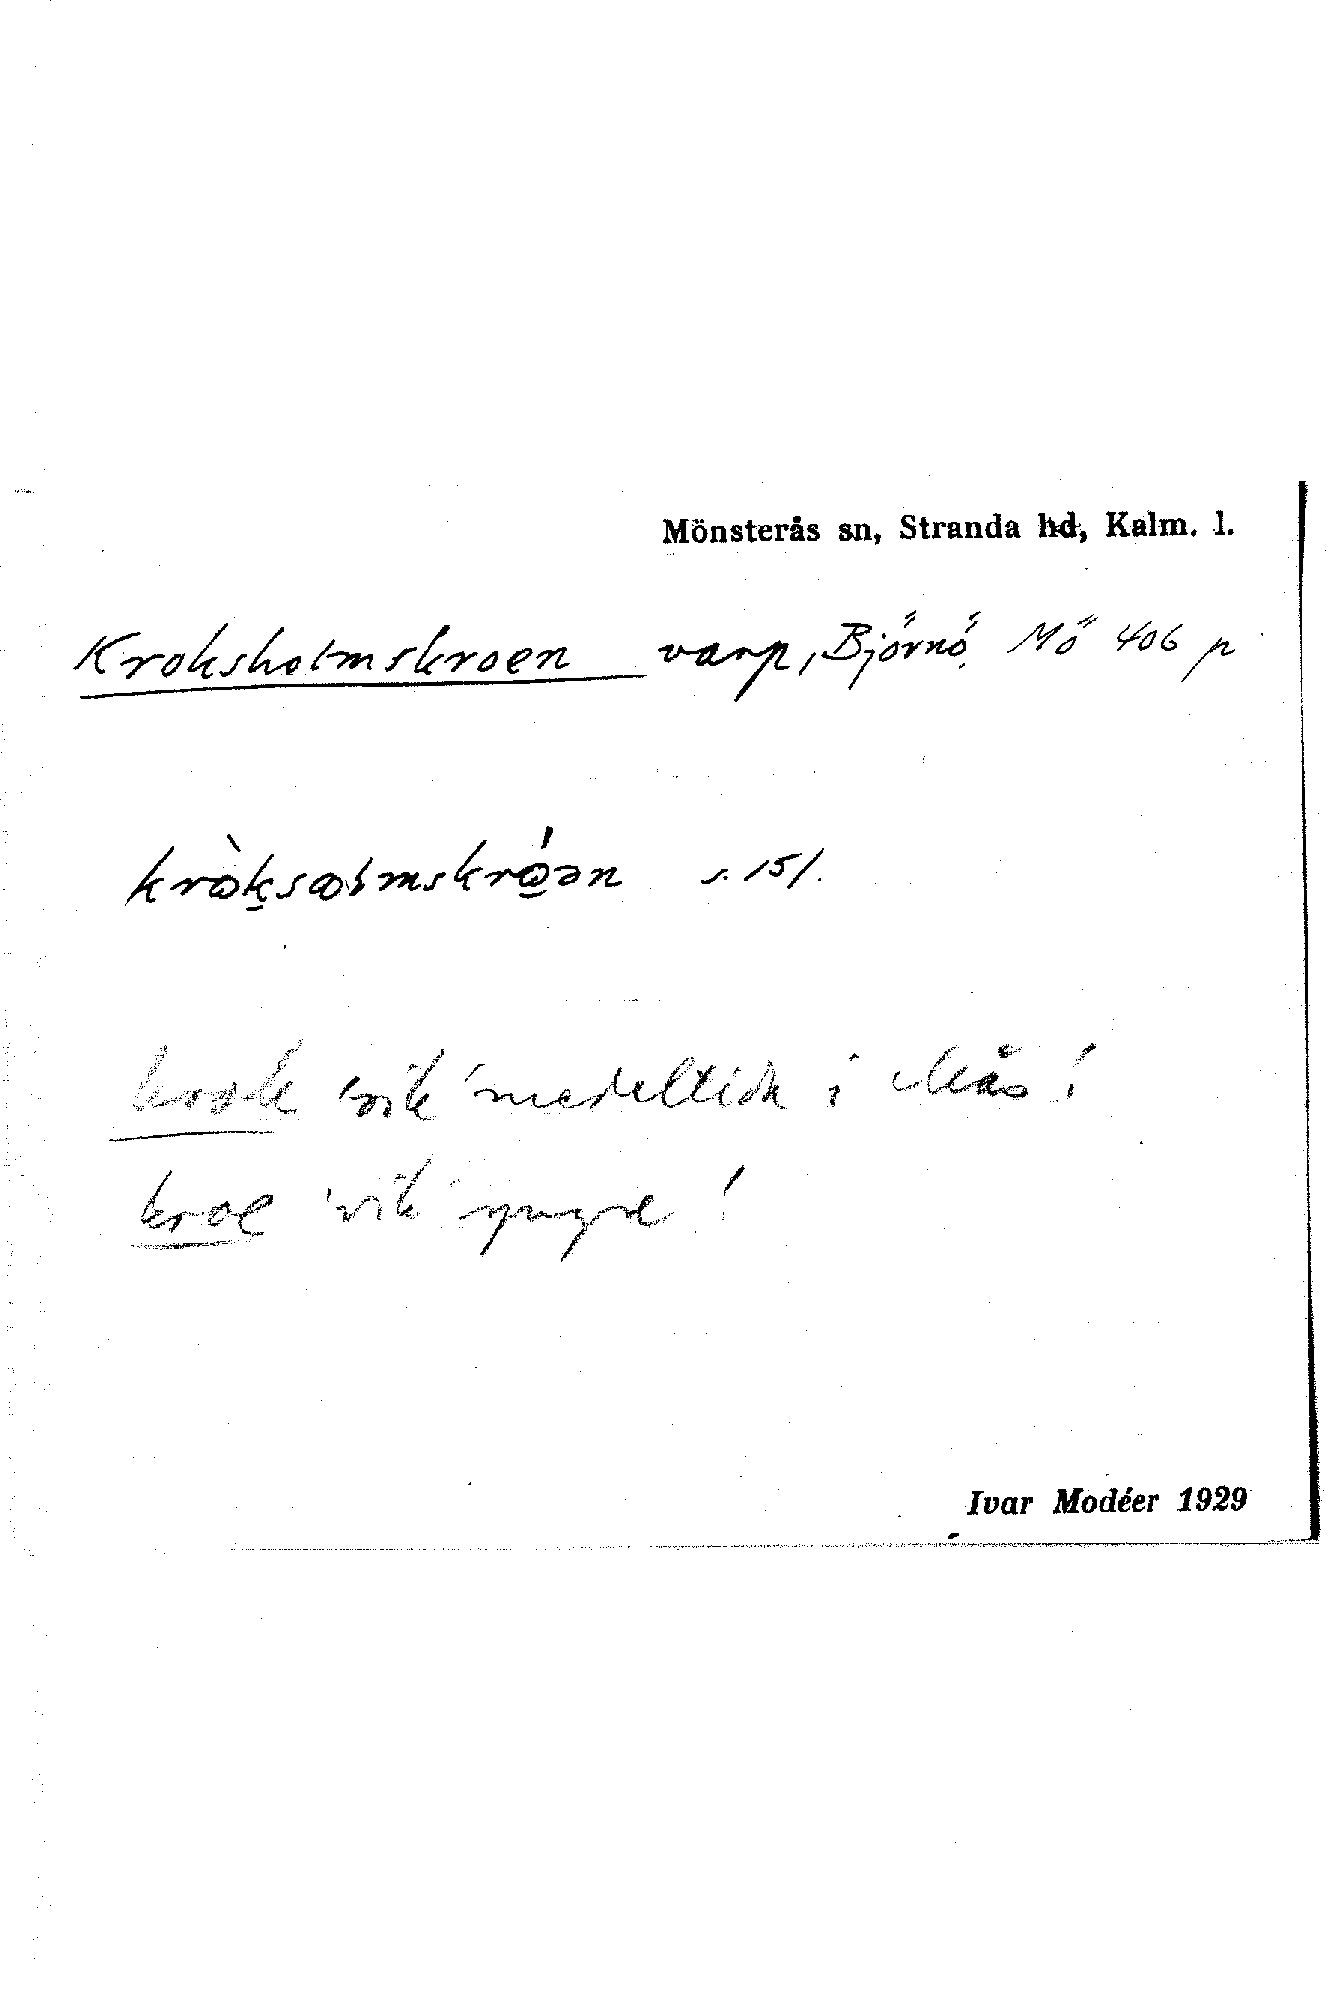 Mönsterås sn, Stranda hd, Kalm. l.
Kroksholmskroen varp, Björnö, Mö 406 p
s. 151.
krok 'vik' medeltida i Mås!
kroe 'vik' yngre!
Ivar Modéer 1929